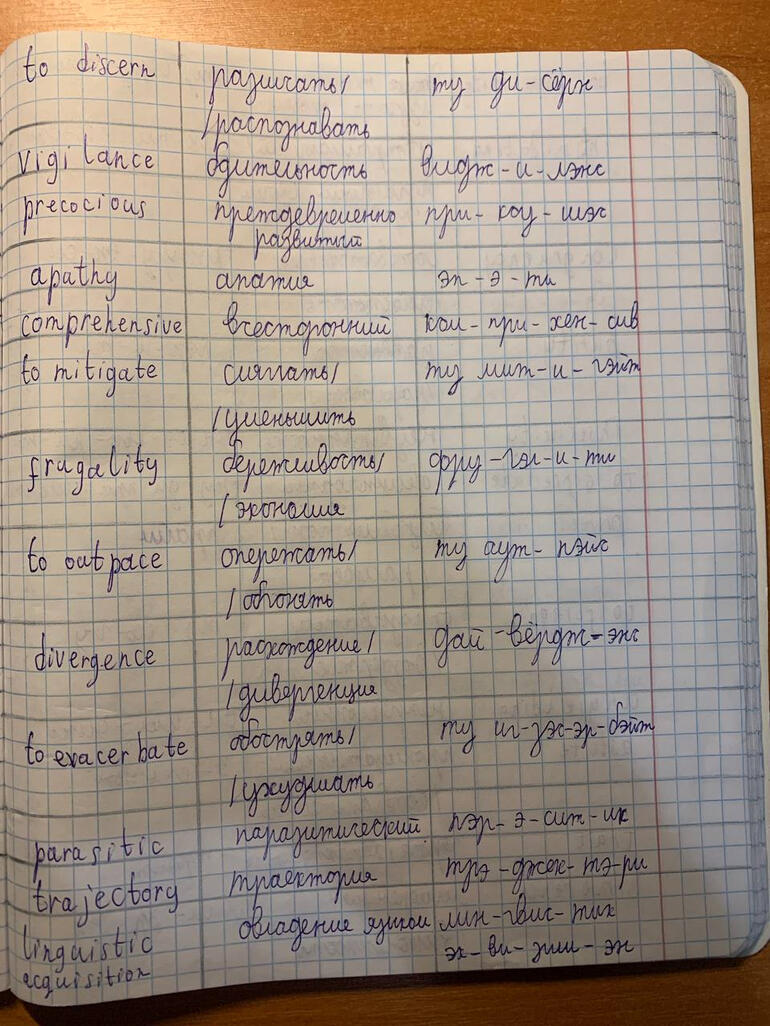 to discern различать/ ту ди-сёрн
/распознавать
vigilance бдительность видж-и-лэнс
precocious преждевременно при-коу-шэс
развитый
apathy апатия эп-э-ти
comprehensive всесторонний ком-при-хен-сив
to mitigate смягчать/ ту мит-и-гэйт
/уменьшить
frugality бережливость/ фру-гэл-и-ти
/экономия
to outpace опережать/ ту аут-пэйс
/обгонять
divergence расхождение/ дай-вёрдж-энс
/дивергенция
to exacerbate обострять/ ту иг-зэс-эр-бэйт
/ухудшать
parasitic паразитический пэр-э-сит-ик
trajectory траектория трэ-джек-тэ-ри
linguistic овладение языком лин-гвис-тик
acquisition эк-ви-зиш-эн